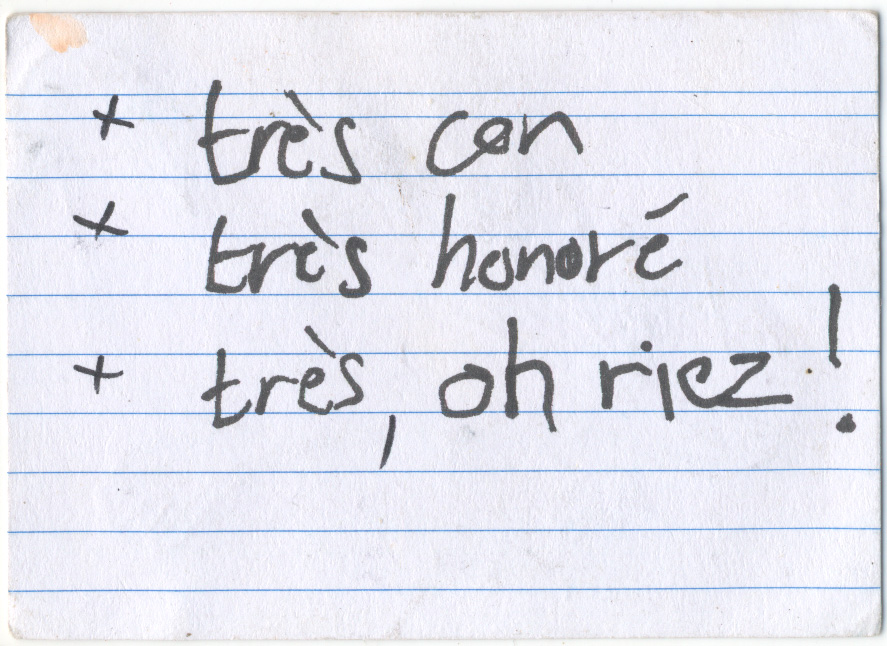 + très con
+ très honoré
+ très, oh riez !